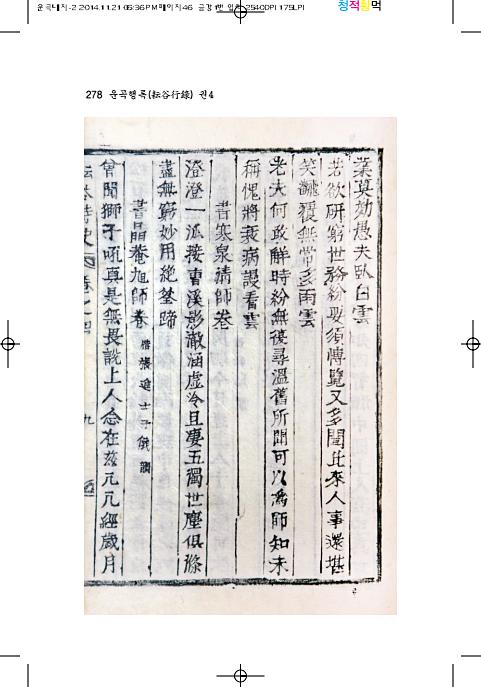 2014.11.21 05:36 PM 페이지46 2540DPI 175LPI
청적황먹
278 운곡행록(耘谷行錄) 권4
業莫効愚夫臥白雲
若欲硏窮世務紛要須博覽又多聞比來人事還堪
笑飜覆無常多雨雲
老夫何敢解時紛無復尋溫舊所聞可以爲師知未
稱愧將衰病謾看雲
書寒泉淸師卷
澄澄一派接曹溪影澈涵虛冷且凄五濁世塵俱滌
盡無窮妙用絶筌蹄
書晶菴旭師卷 張進士子儀韻
曾聞獅子吼真是無畏說上人念在玆兀兀經歲月
耘谷詩史 卷之四 九